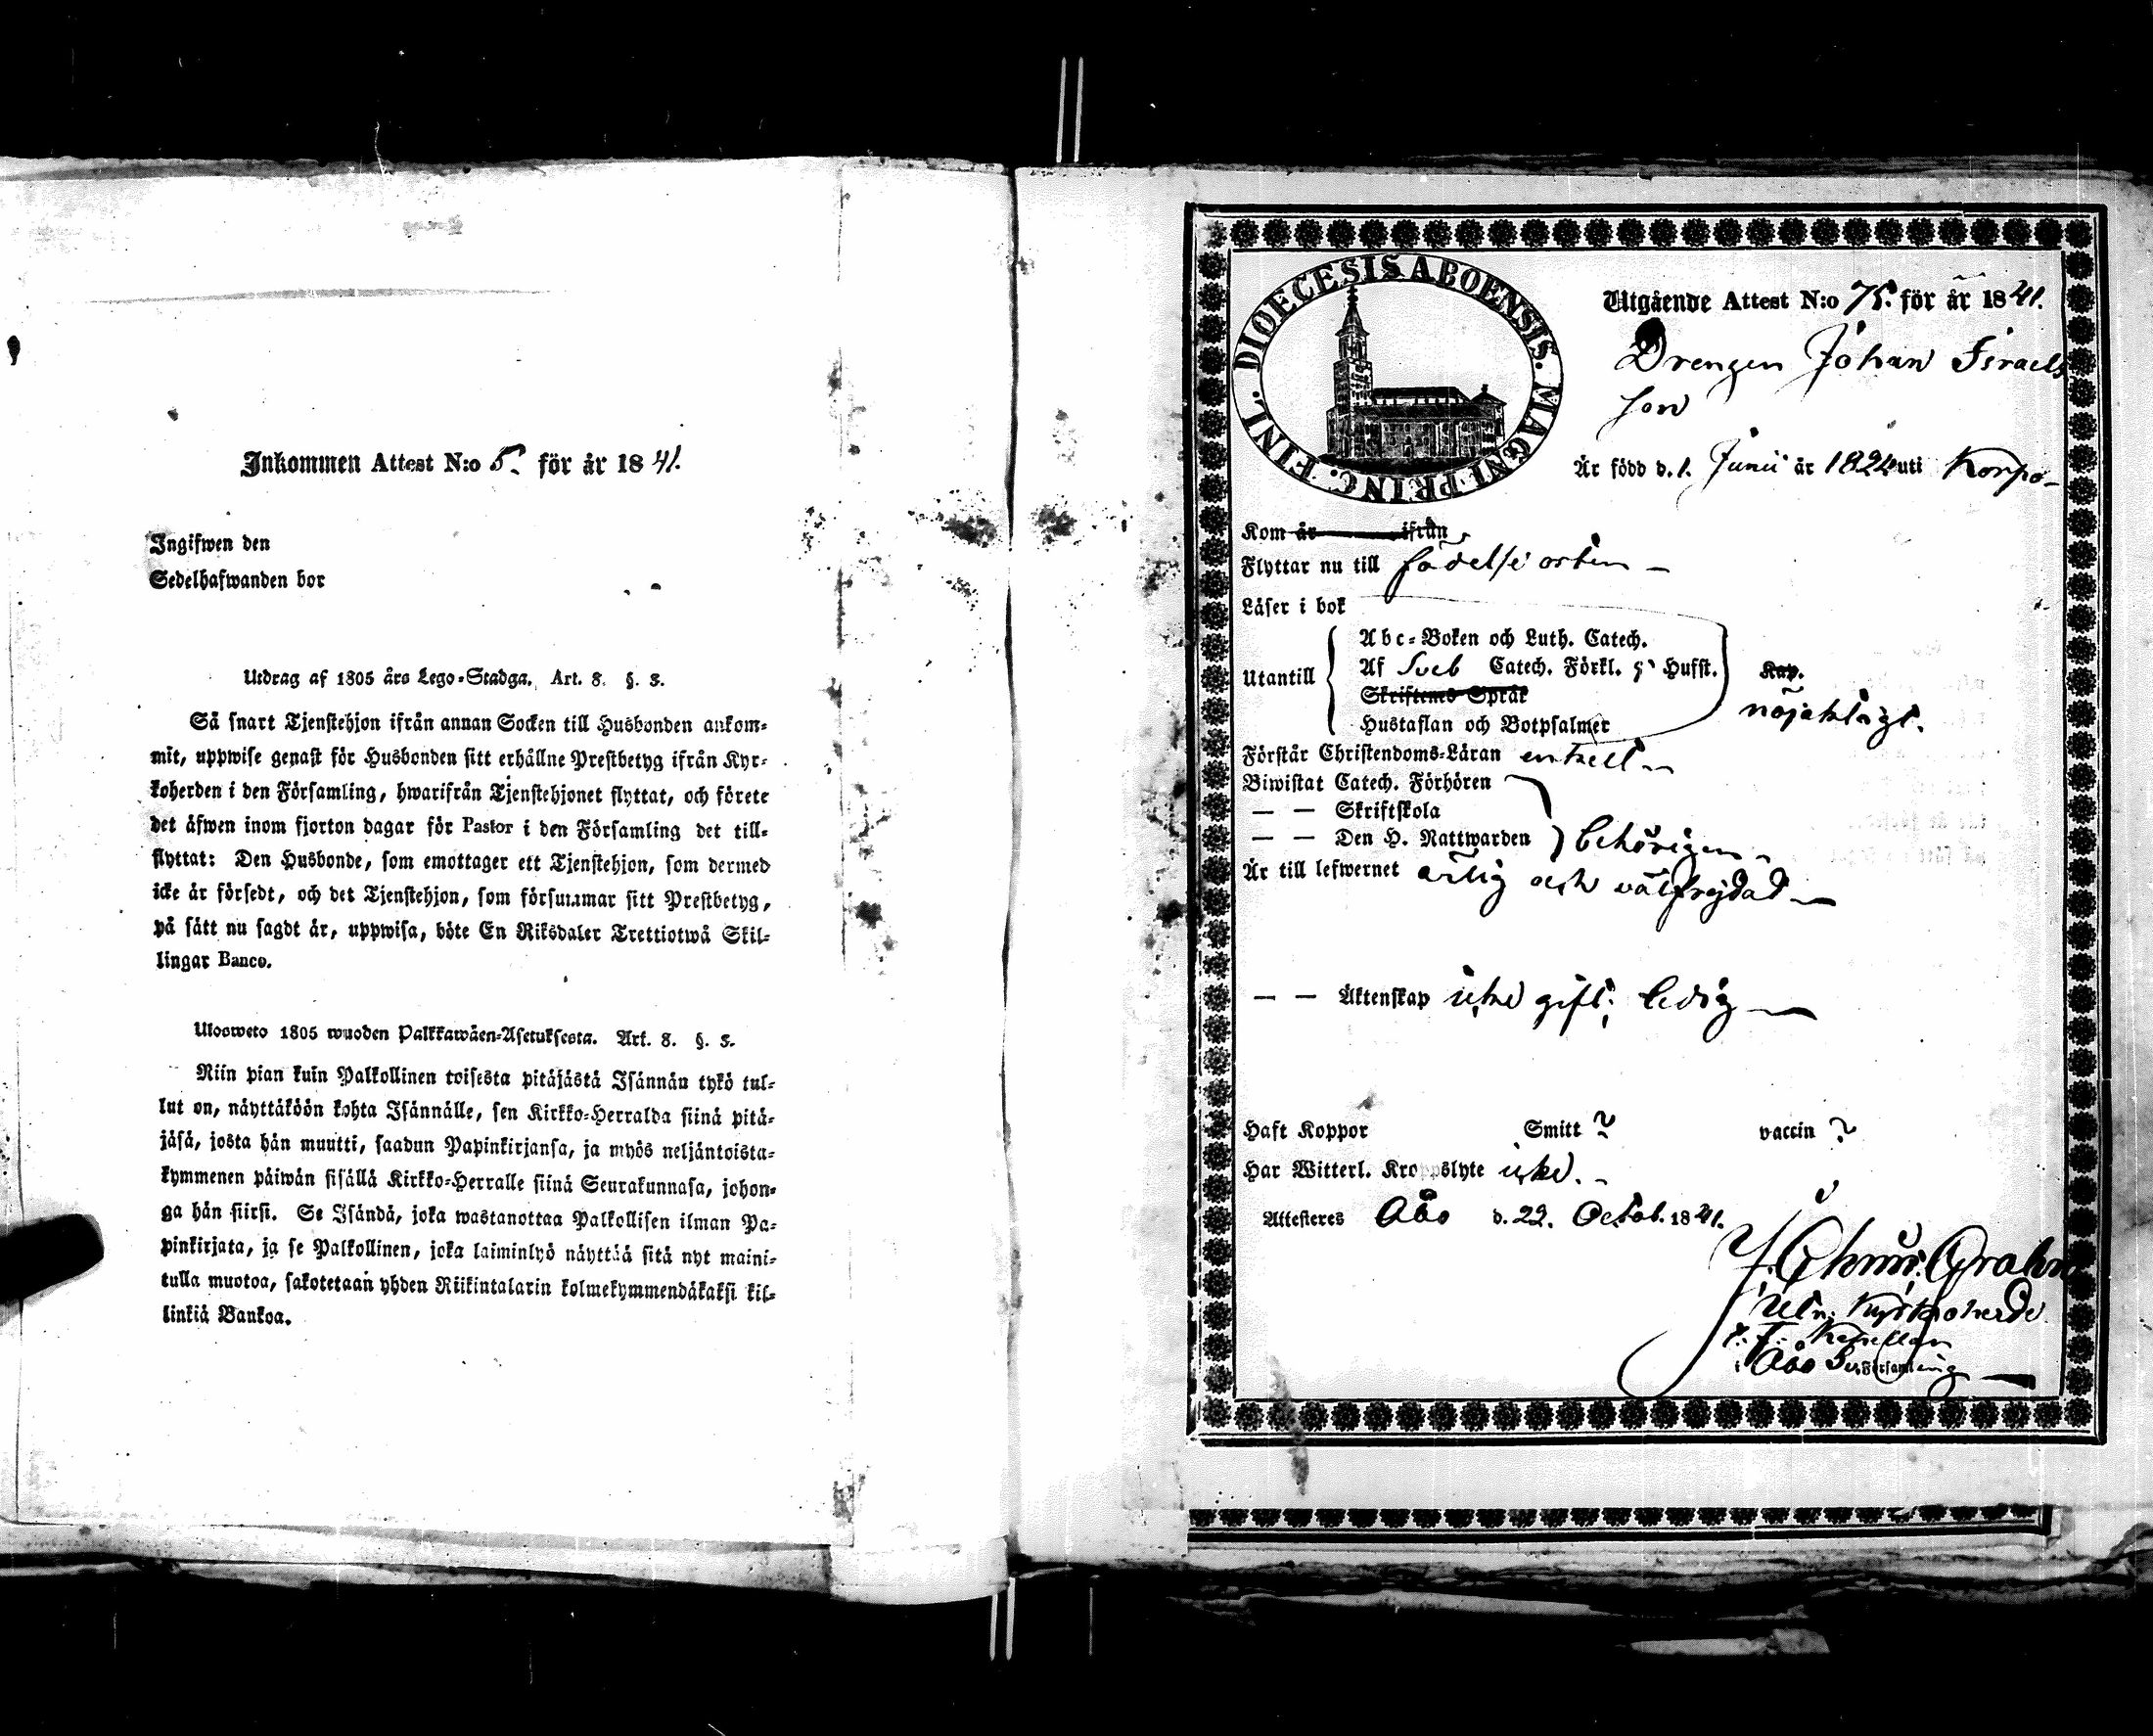 Inkommen Attest N:o 5. för år 1841.
Ingifwen den
Sedelhafwanden bor
Utdrag af 1805 års Lego-Stadga. Art. 8. §. 3.
Så snart Tjenstehjon ifrån annan Socken till Husbonden ankom-
mit, uppwise genast för Husbonden sitt erhållne Prestbetyg ifrån Kyr-
koherden i den Församling, hwarifrån Tjenstehjonet flyttat, och förete
det äfwen inom fjorton dagar för Pastor i den Församling det till-
flyttat: Den Husbonde, som emottager ett Tjenstehjon, som dermed
icke är försedt, och det Tjenstehjon, som försummar sitt Prestbetyg,
på sätt nu sagdt är, uppwisa, böte En Riksdaler Trettiotwå Skil-
lingar Banco.
Ulosweto 1805 wuoden Palkkawäen-Asetuksesta. Art. 8. §. 3.
Niin pian kuin Palkollinen toisesta pitäjästä Isännän tykö tul-
lut on, näyttäköön kohta Isännälle, sen Kirkko-Herralda siinä pitä-
jäsä, josta hän muutti, saadun Papinkirjansa, ja myös neljäntoista-
kymmenen päiwän sisällä Kirkko-Herralle siinä Seurakunnasa, johon-
ga hän siirsi. Se Isändä, joka wastanottaa Palkollisen ilman Pa-
pinkirjata, ja se Palkollinen, joka laiminlyö näyttää sitä nyt maini-
tulla muotoa, sakotetaan yhden Riikintalarin kolmekymmendäkaksi kil-
linkiä Bankoa.
DIOECESIS ABOENSIS. MAGNI PRINC. FINL.
Utgående Attest N:o 75. för år 1841.
Drengen Johan Israels
son
Är född d. 1. Junii år 1824 uti Korpo-
Kom år ifrån
Flyttar nu till födelse orten -
Läser i bok
Utantill
Abc-Boken och Luth. Catech.
Af Sveb Catech. Förkl. 5 Hufst. Kap.
Skriftens Språk
nöjaktigt.
Hustaflan och Botpsalmer
Förstår Christendoms-Läran enkelt -
Biwistat Catech. Förhören
— — Skriftskola
— — Den H. Nattwarden behörigen -
Är till lefwernet ärlig och välfrejdad -
— — Äktenskap icke gift; ledig -
Haft Koppor Smitt ? vaccin ?
Har Witterl. Kroppslyte icke. -
Attesteres Åbo d. 22. Octob. 1841.
Grahn
Kyrkoherde
t. f. Kapellan
i Åbo Sv. Församling -